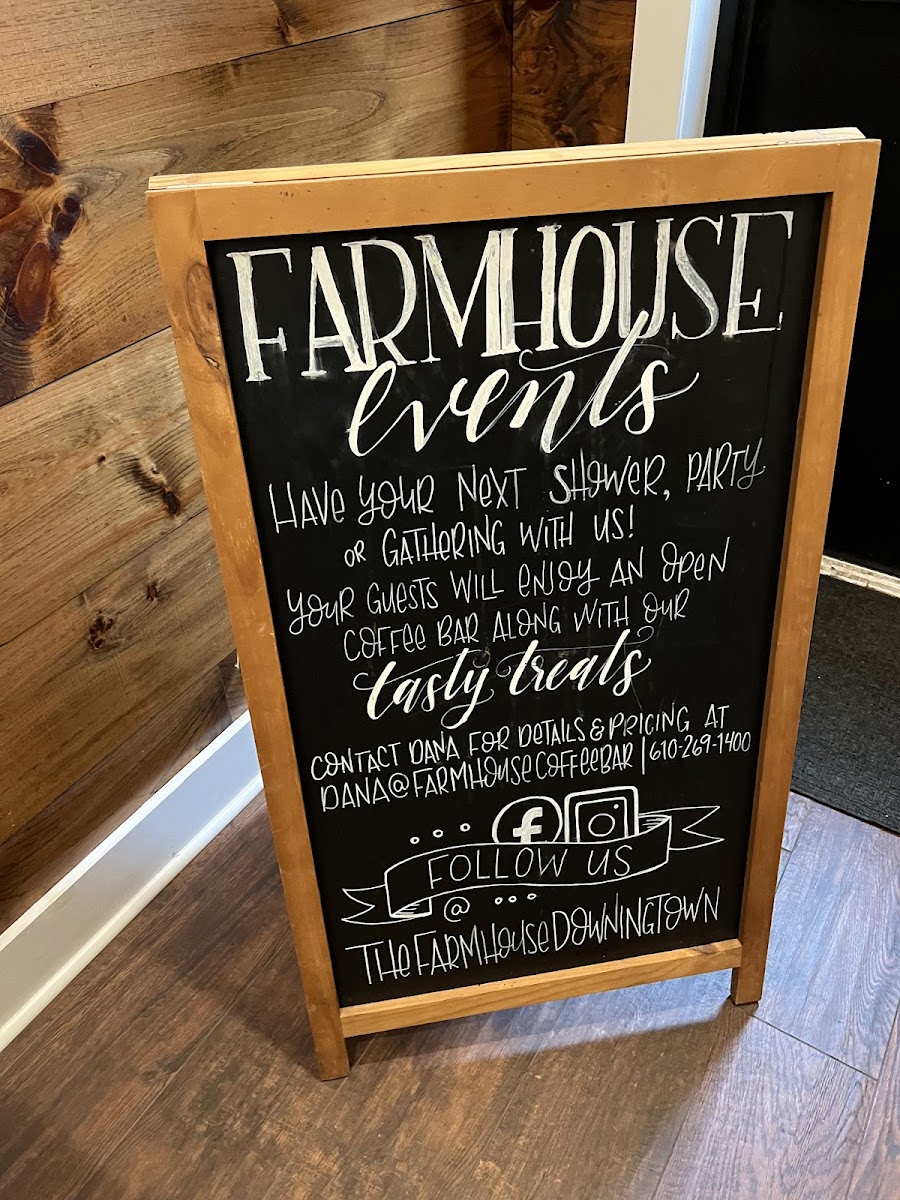 FARMHOUSE
events
HAVE YOUR NEXT SHOWER, PARTY
OR GATHERING WITH US!
YOUR GUESTS WILL ENJOY AN OPEN
COFFEE BAR ALONG WITH OUR
tasty treats
CONTACT DANA FOR DETAILS & PRICING AT
DANA@FARMHOUSECOFFEEBAR | 610-269-1400
FOLLOW US
@
THEFARMHOUSEDOWNINGTOWN